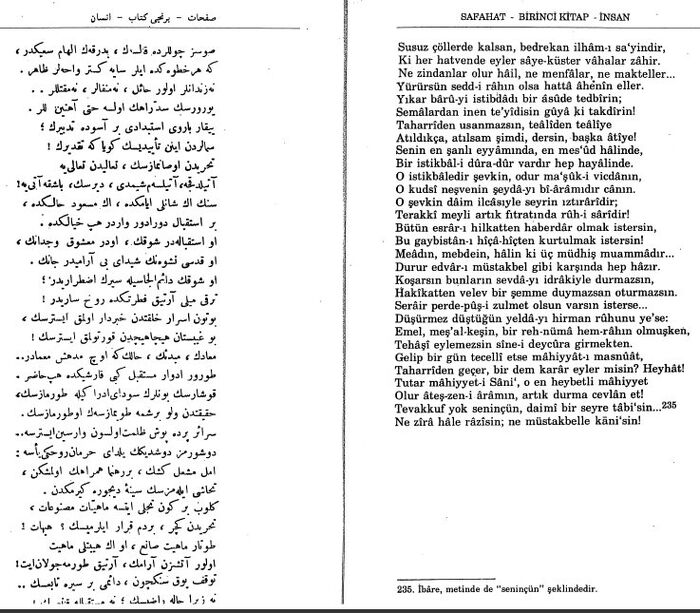 صفحات - برنجى كتاب - انسان
صوسز چوللرده قالسه‌ك ، بدرقه‌ك الهام سعيكدر ،
كه هر خطوه‌كده ايلر سايه كستر واحه‌لر ظاهر .
نه زندانلر اولور حائل ، نه منفالر ، نه مقتللر ...
يورورسك سد راهك اولسه حتى آهنين اللر .
ييقار باروى استبدادى بر آسوده تدبيرك ؛
سمالردن اينن تأييديسك كويا كه تقديرك !
تحريدن اوصانمازسك ، تعاليدن تعالى‌يه
آتيلدقجه ، آتيلسه‌م شيمدى ، ديرسك ، باشقه آتى‌يه !
سنك اك شانلى ايامكده ، اك مسعود حالكده ،
بر استقبال دورادور واردر هپ خيالكده .
او استقباله‌در شوقك ، اودر معشوق وجدانك ،
او قدسى نشوه‌نك شيداى بى آراميدر جانك .
او شوقك دائم الجاسيله سيرك اضطراريدر ؛
ترقى ميلى آرتيق فطرتكده روح ساريدر !
بوتون اسرار خلقتدن خبردار اولمق ايسترسك ،
بو غيبستان هيچاهيچدن قورتولمق ايسترسك !
معادك ، مبدئك ، حالك كه اوچ مدهش معمادر ..
طورور ادوار مستقبل كبى قارشيكده هپ حاضر .
قوشارسك بونلرك سوداى ادراكيله طورمازسك ،
حقيقتدن ولو برشمه طويمازسه‌ك اوطورمازسك .
سرائر پرده پوش ظلمت اولسون وارسين ايسترسه ..
دوشورمز دوشديكك يلداى حرمان روحكى يأسه :
امل مشعل كشك ، بررهنما همراهك اولمشكن ،
تحاشى ايله‌مزسك سينۀ ديجوره كيرمكدن .
كلوب بر كون تجلى ايتسه ماهيات مصنوعات ،
تحريدن كچر ، بردم قرار ايلرميسك ؟ هيهات !
طوتار ماهيت صانع ، او اك هيبتلى ماهيت
اولور آتشزن آرامك ، آرتيق طورمه جولان ايت !
توقف يوق سنكچون ، دائمى بر سيره تابعسك ..
SAFAHAT - BİRİNCİ KİTAP - İNSAN
Susuz çöllerde kalsan, bedrekan ilhâm-ı sa'yindir,
Ki her hatvende eyler sâye-küster vâhalar zâhir.
Ne zindanlar olur hâil, ne menfâlar, ne makteller...
Yürürsün sedd-i râhın olsa hattâ âhenîn eller.
Yıkar bârû-yi istibdâdı bir âsûde tedbîrin;
Semâlardan inen te'yîdisin gûyâ ki takdîrin!
Taharrîden usanmazsın, teâlîden teâlîye
Atıldıkça, atılsam şimdi, dersin, başka âtîye!
Senin en şanlı eyyâmında, en mes'ûd hâlinde,
Bir istikbâl-i dûra-dûr vardır hep hayâlinde.
O istikbâledir şevkin, odur ma'şûk-i vicdânın,
O kudsî neşvenin şeydâ-yı bî-ârâmıdır cânın.
O şevkin dâim ilcâsıyle seyrin ıztırârîdir;
Terakkî meyli artık fıtratında rûh-i sârîdir!
Bütün esrâr-ı hilkatten haberdâr olmak istersin,
Bu gaybistan-ı hîçâ-hîçten kurtulmak istersin!
Meâdın, mebdein, hâlin ki üç müdhiş muammâdır...
Durur edvâr-ı müstakbel gibi karşında hep hazır.
Koşarsın bunların sevdâ-yı idrâkiyle durmazsın,
Hakîkatten velev bir şemme duymazsan oturmazsın.
Serâir perde-pûş-i zulmet olsun varsın isterse...
Düşürmez düştüğün yeldâ-yı hirman rûhunu ye'se:
Emel, meş'al-keşin, bir reh-nümâ hem-râhın olmuşken,
Tehâşî eylemezsin sîne-i deycûra girmekten.
Gelip bir gün tecellî etse mâhiyyât-ı masnûât,
Taharrîden geçer, bir dem karâr eyler misin? Heyhât!
Tutar mâhiyyet-i Sâni', o en heybetli mâhiyyet
Olur âteş-zen-i ârâmın, artık durma cevlân et!
Tevakkuf yok seninçün, daimî bir seyre tâbi'sin...235
Ne zîrâ hâle râzîsin; ne müstakbelle kāni'sin!
235. İbâre, metinde de "seninçün" şeklindedir.